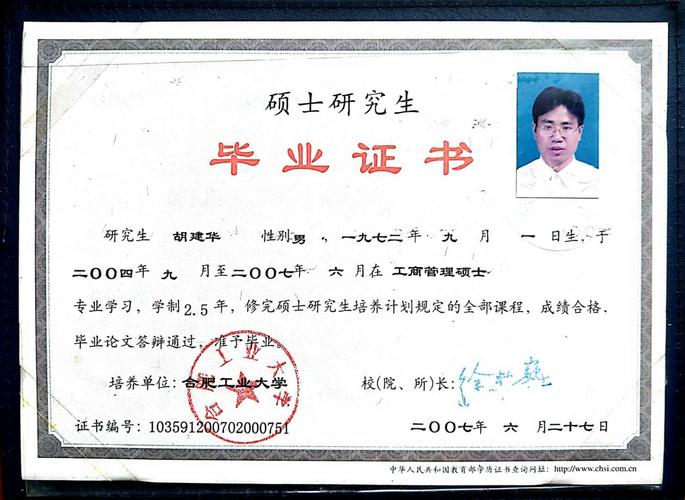 硕士研究生
毕业证书
研究生 胡建华 性别男，一九七二年 九 月 一 日生，于
二〇〇四年 九 月至二〇〇七年 六 月在 工商管理硕士
专业学习，学制2.5年，修完硕士研究生培养计划规定的全部课程，成绩合格，
毕业论文答辩通过，准予毕业。
合肥工业大学
培养单位：合肥工业大学 校(院、所)长：
证书编号：103591200702000751 二〇〇七年 六 月二十七日
中华人民共和国教育部学历证书查询网址：http://www.chsi.com.cn